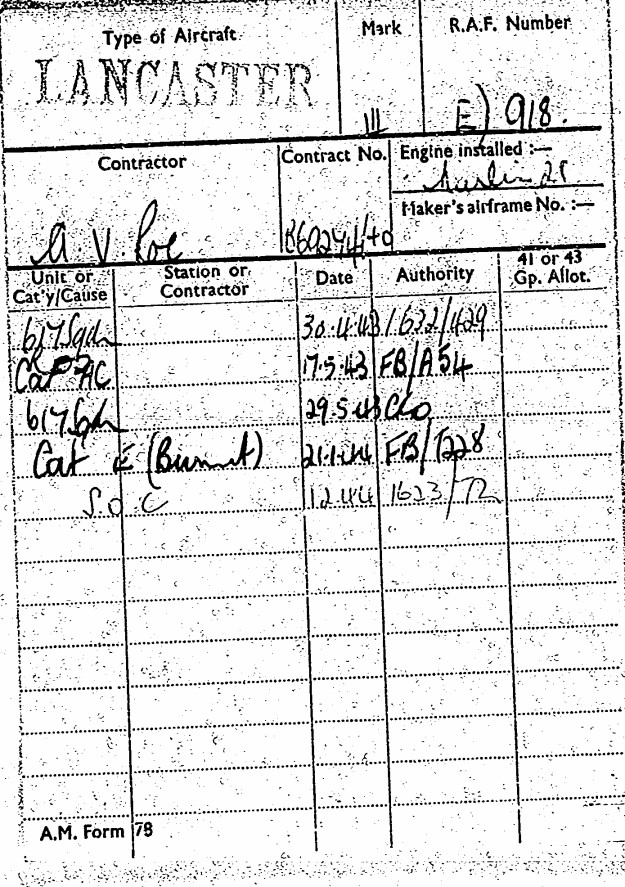 Type of Aircraft
Mark
R.A.F. Number
LANCASTER
III
E) 918.
Contractor
Contract No.
Engine installed :—
28
Maker's airframe No. :—
A V Roe
B69274/40
Unit or Cat'y/Cause
Station or Contractor
Date
Authority
41 or 43 Gp. Allot.
617 Sqdn 30.4.43 1632/429
Cat AC 17.5.43 FB/A54
617 Sqdn 29.5.43
Cat E (Burnt) 21.1.44 FB/T228
S.O.C 1.2.44 1623/T2
A.M. Form 78